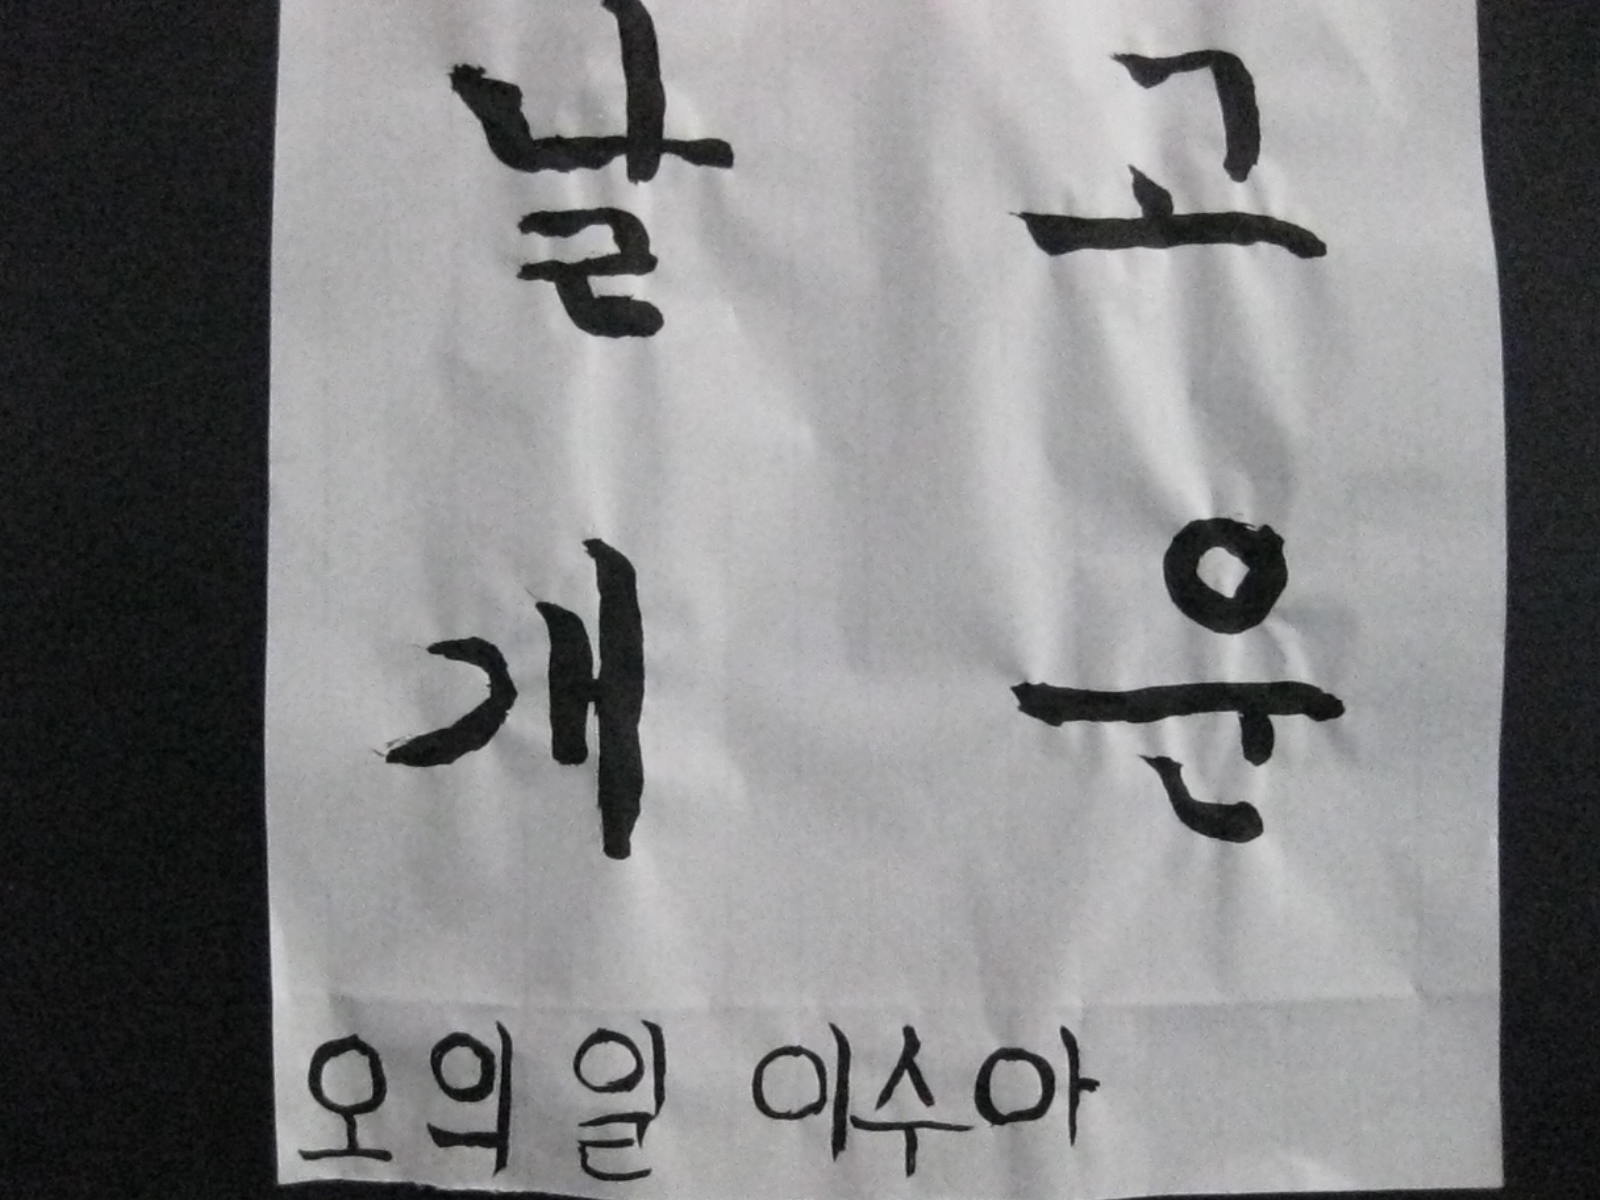 고운
날개
오의일 이수아